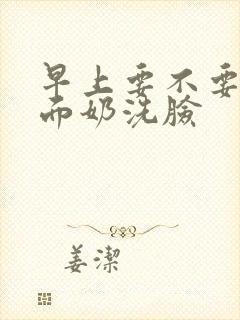 早上要不要
而奶洗臉
姜潔